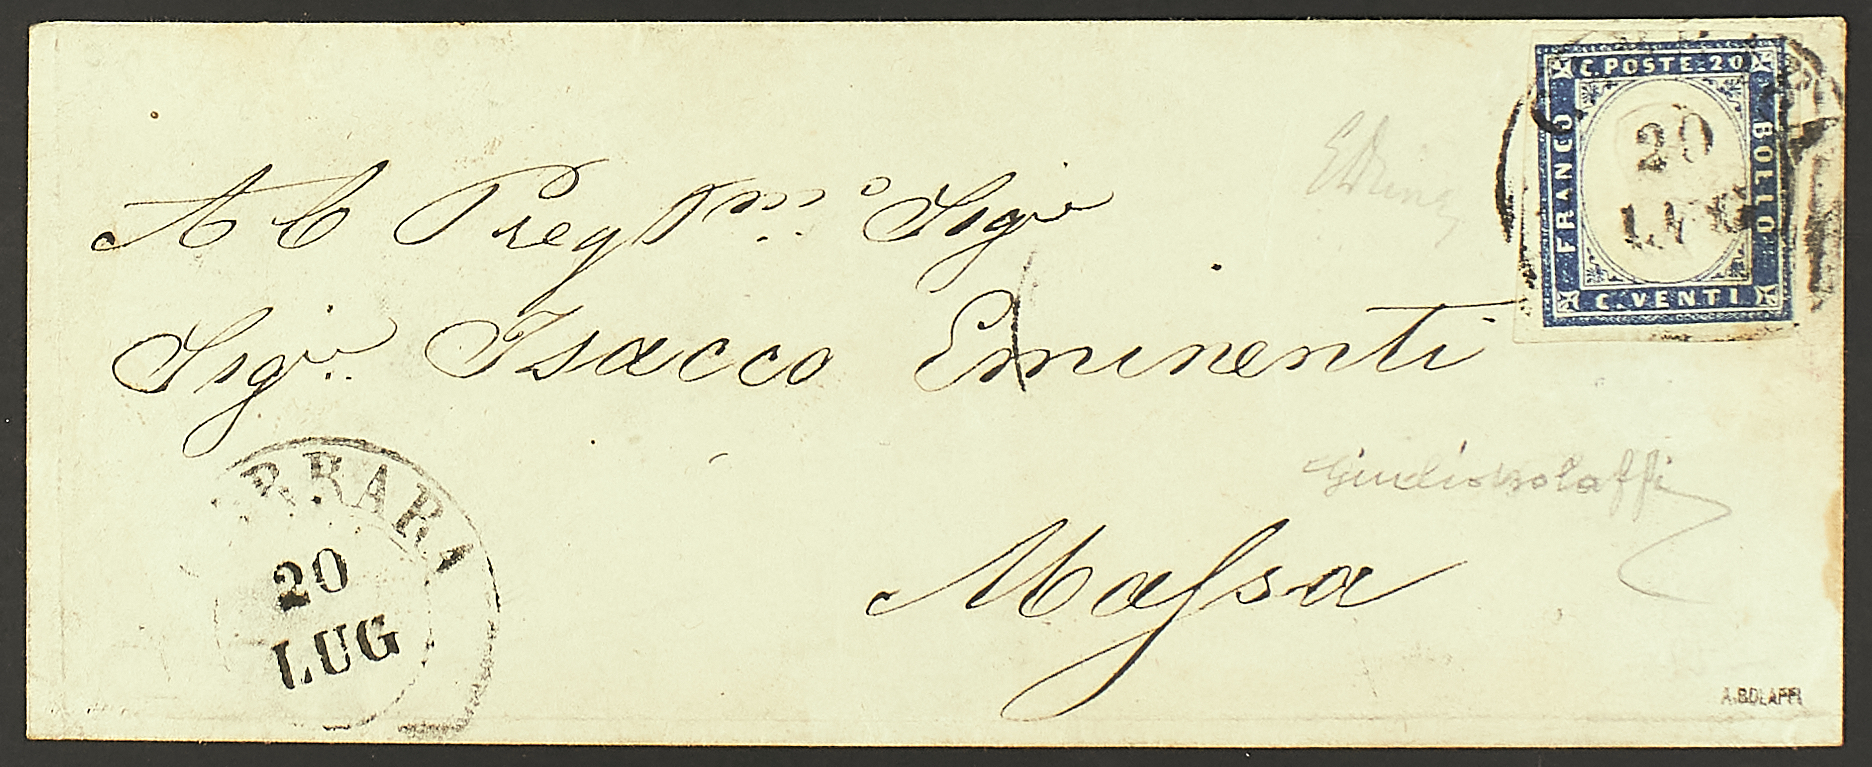 C. POSTE. 20
FRANCO
BOLLO
C. VENTI
20
LUG
Al Preg.mo Sigr
Sigr. Isacco Eminenti
Massa
Giulio Bolaffi
RRARA
20
LUG
A. BOLAFFI